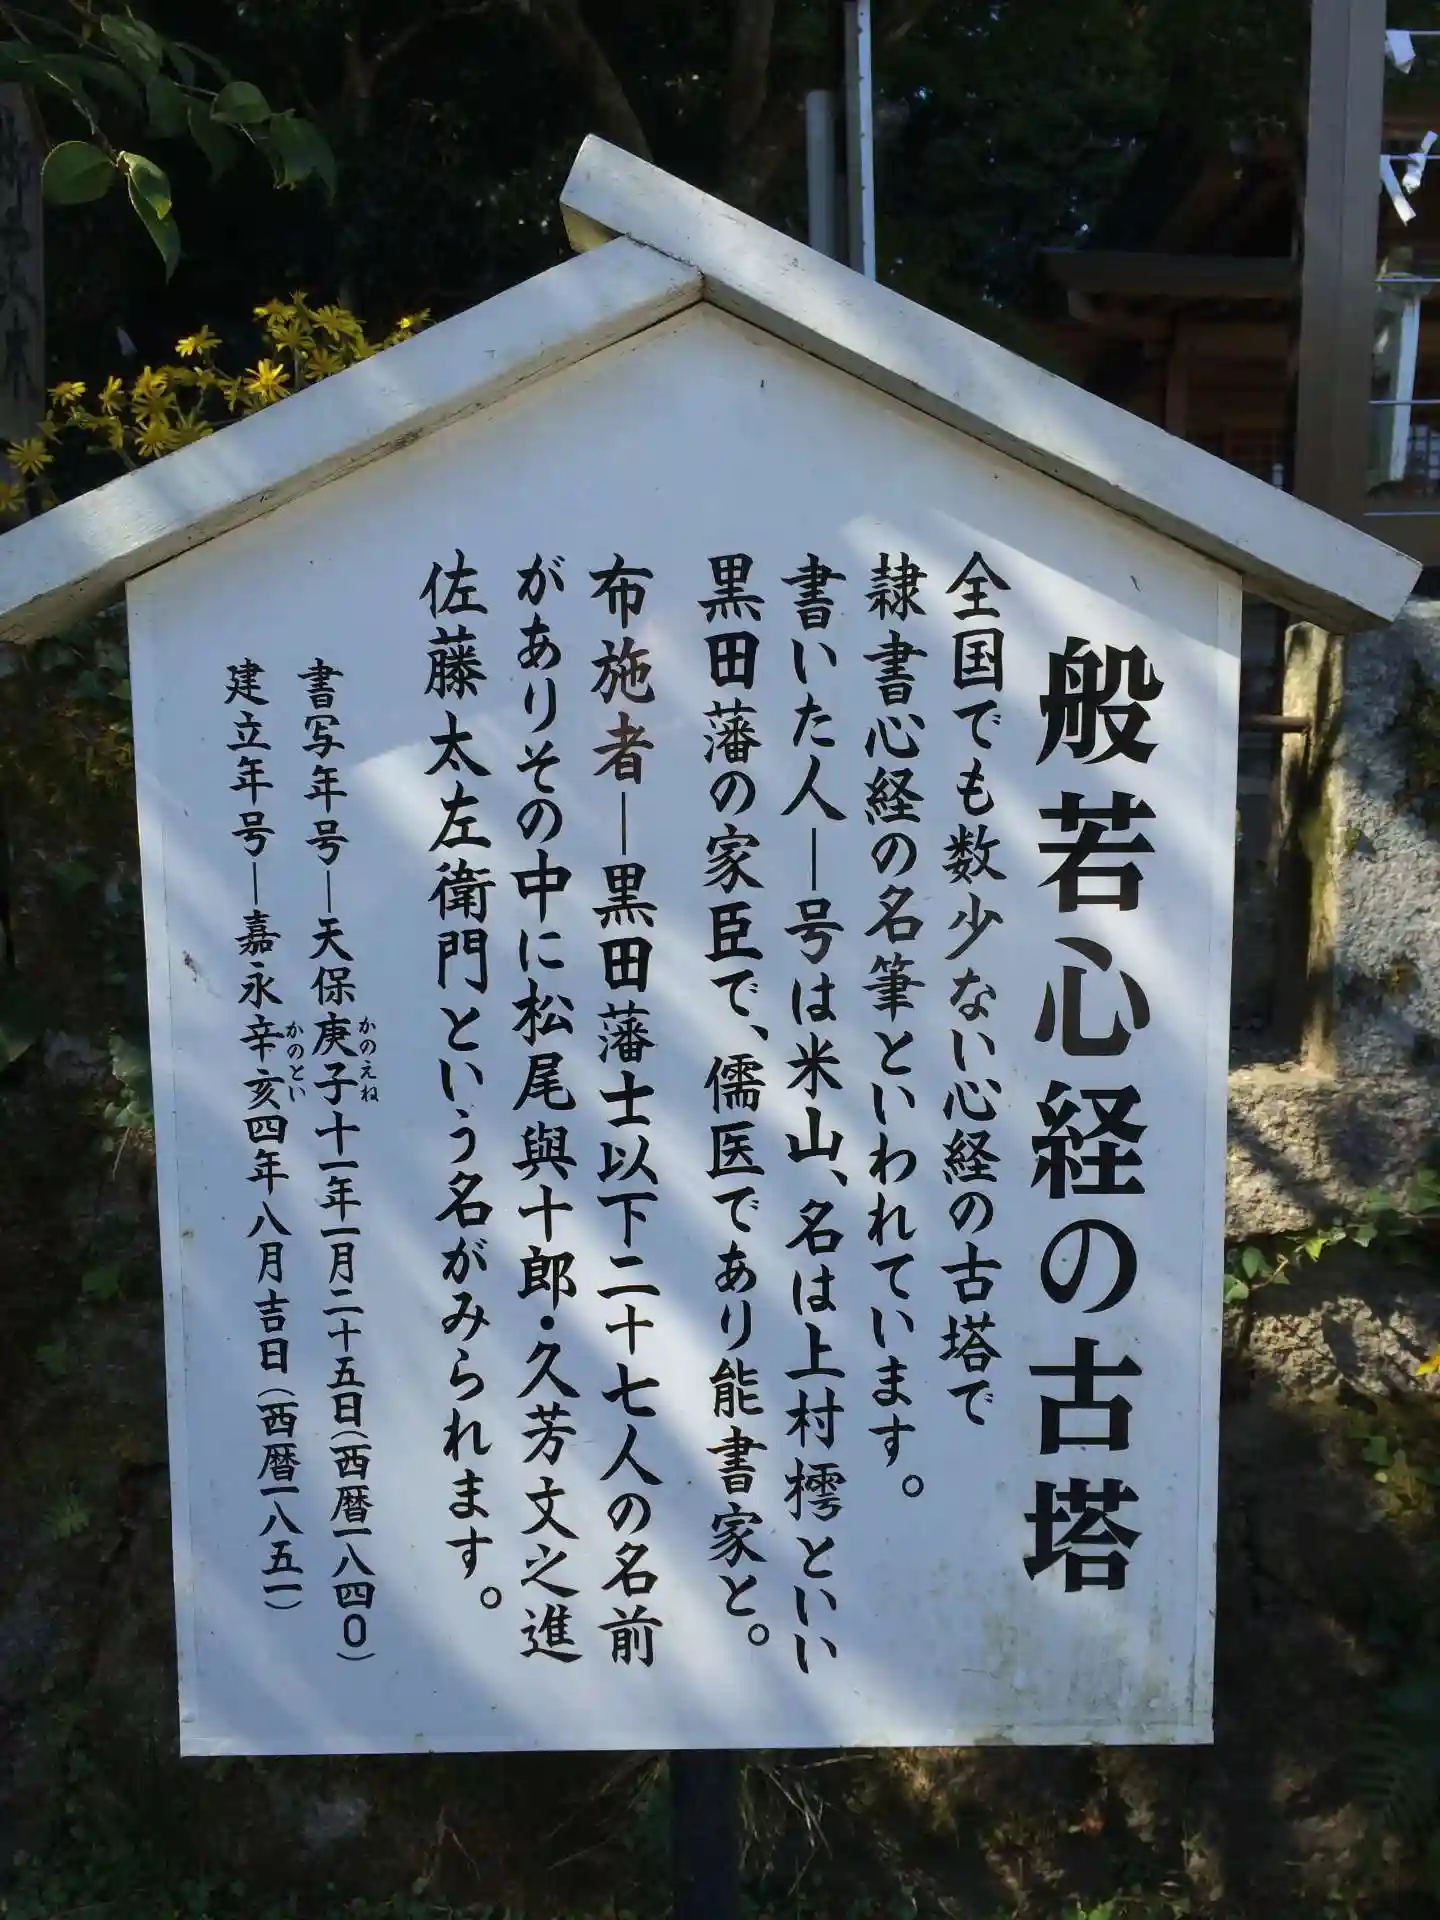 般若心経の古塔
全国でも数少ない心経の古塔で
隷書心経の名筆といわれています。
書いた人―号は米山、名は上村樗といい
黒田藩の家臣で、儒医であり能書家と。
布施者―黒田藩士以下二十七人の名前
がありその中に松尾與十郎・久芳文之進
佐藤太左衛門という名がみられます。
書写年号―天保庚子十一年一月二十五日(西暦一八四0)
かのえね
建立年号―嘉永辛亥四年八月吉日(西暦一八五一)
かのとい